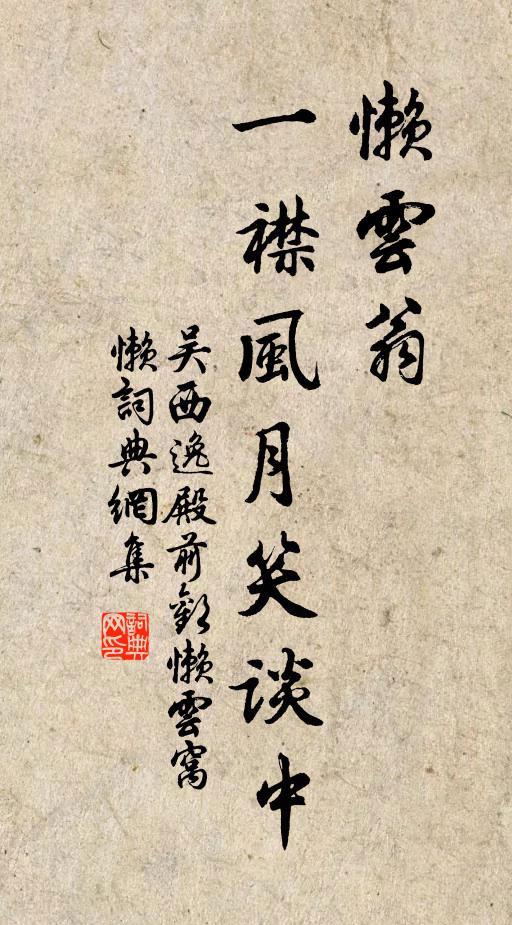 懶雲翁
一襟風月笑談中
吳西逸殿前歡懶雲窩
懶詞典網集
詞典网印